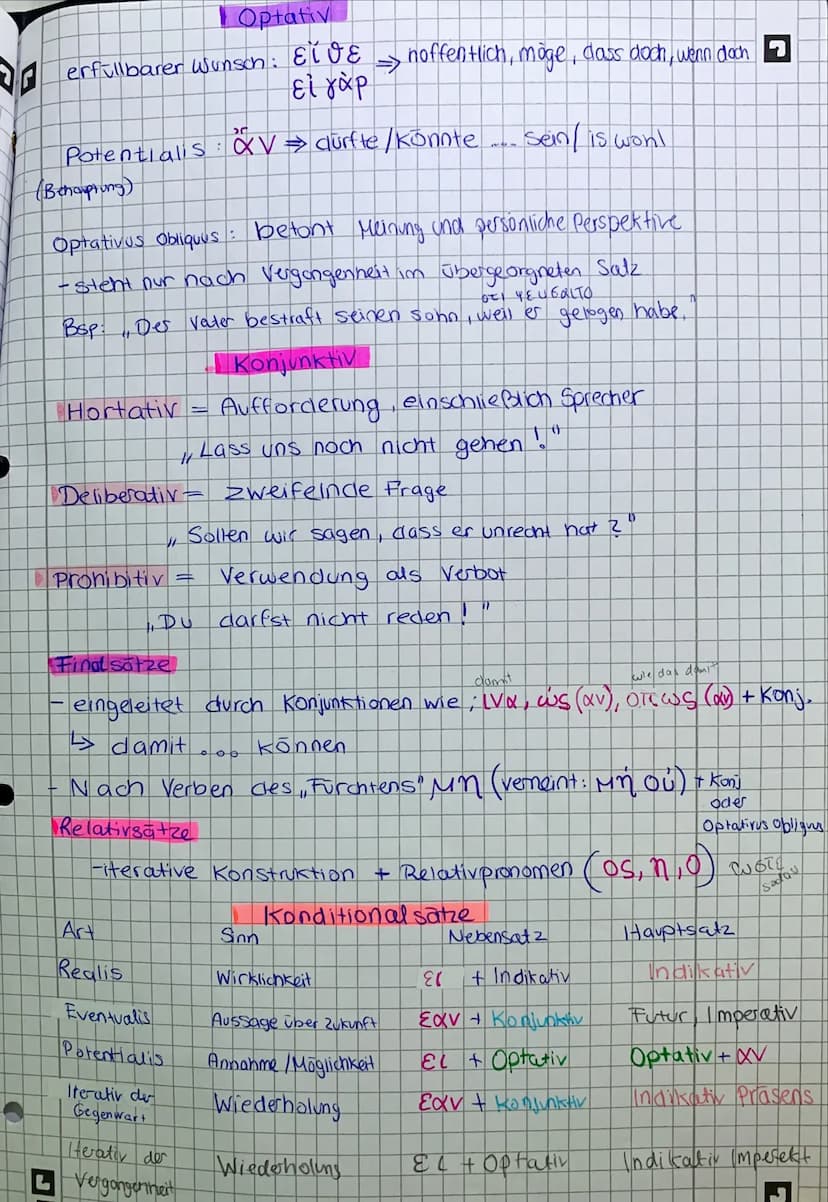 Optativ
erfüllbarer Wunsch: εἴθε ⇒ hoffentlich, möge, dass doch, wenn doch
εἰ γὰρ
Potentialis: ἄν ⇒ dürfte/könnte .... sein/ is wohl
(Behauptung)
Optativus Obliquus: betont Meinung und persönliche Perspektive
- steht nur nach Vergangenheit im übergeorgneten Satz
οτι ψευσαιτο
Bsp: „Der Vater bestraft seinen Sohn, weil er gelogen habe."
Konjunktiv
Hortativ = Aufforderung, einschließlich Sprecher
„Lass uns noch nicht gehen!"
Deliberativ = zweifelnde Frage
„Sollen wir sagen, dass er unrecht hat?"
Prohibitiv = Verwendung als Verbot
„Du darfst nicht reden!"
Finalsätze
damit wie das damit
- eingeleitet durch Konjunktionen wie ; ινα, ὡς (αν), οπως (αν) + Konj.
↳ damit ... können
- Nach Verben des „Fürchtens" μη (verneint: μὴ οὐ) + Konj
oder
Optativus Obliquus
Relativsätze
- iterative Konstruktion + Relativpronomen (ος, η, ο) ωστε
sodass
Konditionalsätze
Art Sinn Nebensatz Hauptsatz
Realis Wirklichkeit ει + Indikativ Indikativ
Eventualis Aussage über Zukunft εαν + Konjunktiv Futur, Imperativ
Potentialis Annahme/Möglichkeit ει + Optativ Optativ + αν
Iterativ der Gegenwart Wiederholung εαν + Konjunktiv Indikativ Präsens
Iterativ der Vergangenheit Wiederholung ει + Optativ Indikativ Imperfekt